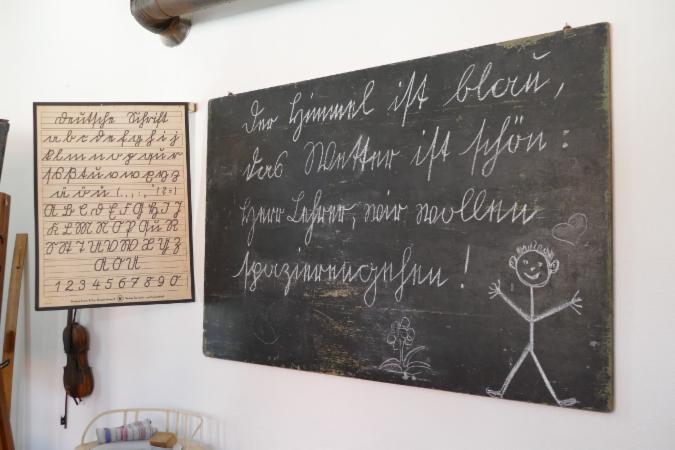 Deutsche Schrift
a b c d e f g h i j
k l m n o p q u r
s ſ ß t u v w x y z
ä ö ü ( . , : ; " ! ? = )
A B C D E F G H I J
K L M N O P Qu R
S St T U V W X Y Z
Ä Ö Ü
1 2 3 4 5 6 7 8 9 0
Der Himmel ist blau,
das Wetter ist schön:
Herr Lehrer, wir wollen
spazierengehen!